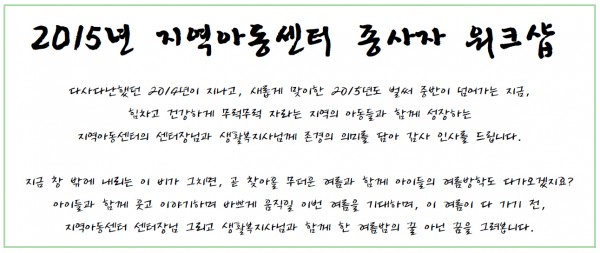 2015년 지역아동센터 종사자 워크샵
다사다난했던 2014년이 지나고, 새롭게 맞이한 2015년도 벌써 중반이 넘어가는 지금,
힘차고 건강하게 무럭무럭 자라는 지역의 아동들과 함께 성장하는
지역아동센터의 센터장님과 생활복지사님께 존경의 의미를 담아 감사 인사를 드립니다.
지금 창 밖에 내리는 이 비가 그치면, 곧 찾아올 무더운 여름과 함께 아이들의 여름방학도 다가오겠지요?
아이들과 함께 웃고 이야기하며 바쁘게 움직일 이번 여름을 기대하며, 이 여름이 다 가기 전,
지역아동센터 센터장님 그리고 생활복지사님과 함께 한 여름밤의 꿀 아닌 꿈을 그려봅니다.